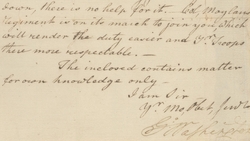 down, there is no help for it. Col. Maylans
Regiment is on its march to join you, which
will render the duty easier and Yr. Troops
there more respectable. —
The inclosed contains matter
for own knowledge only —
I am Sir
Yr. Mo. Obt. Serv
Go. Washington